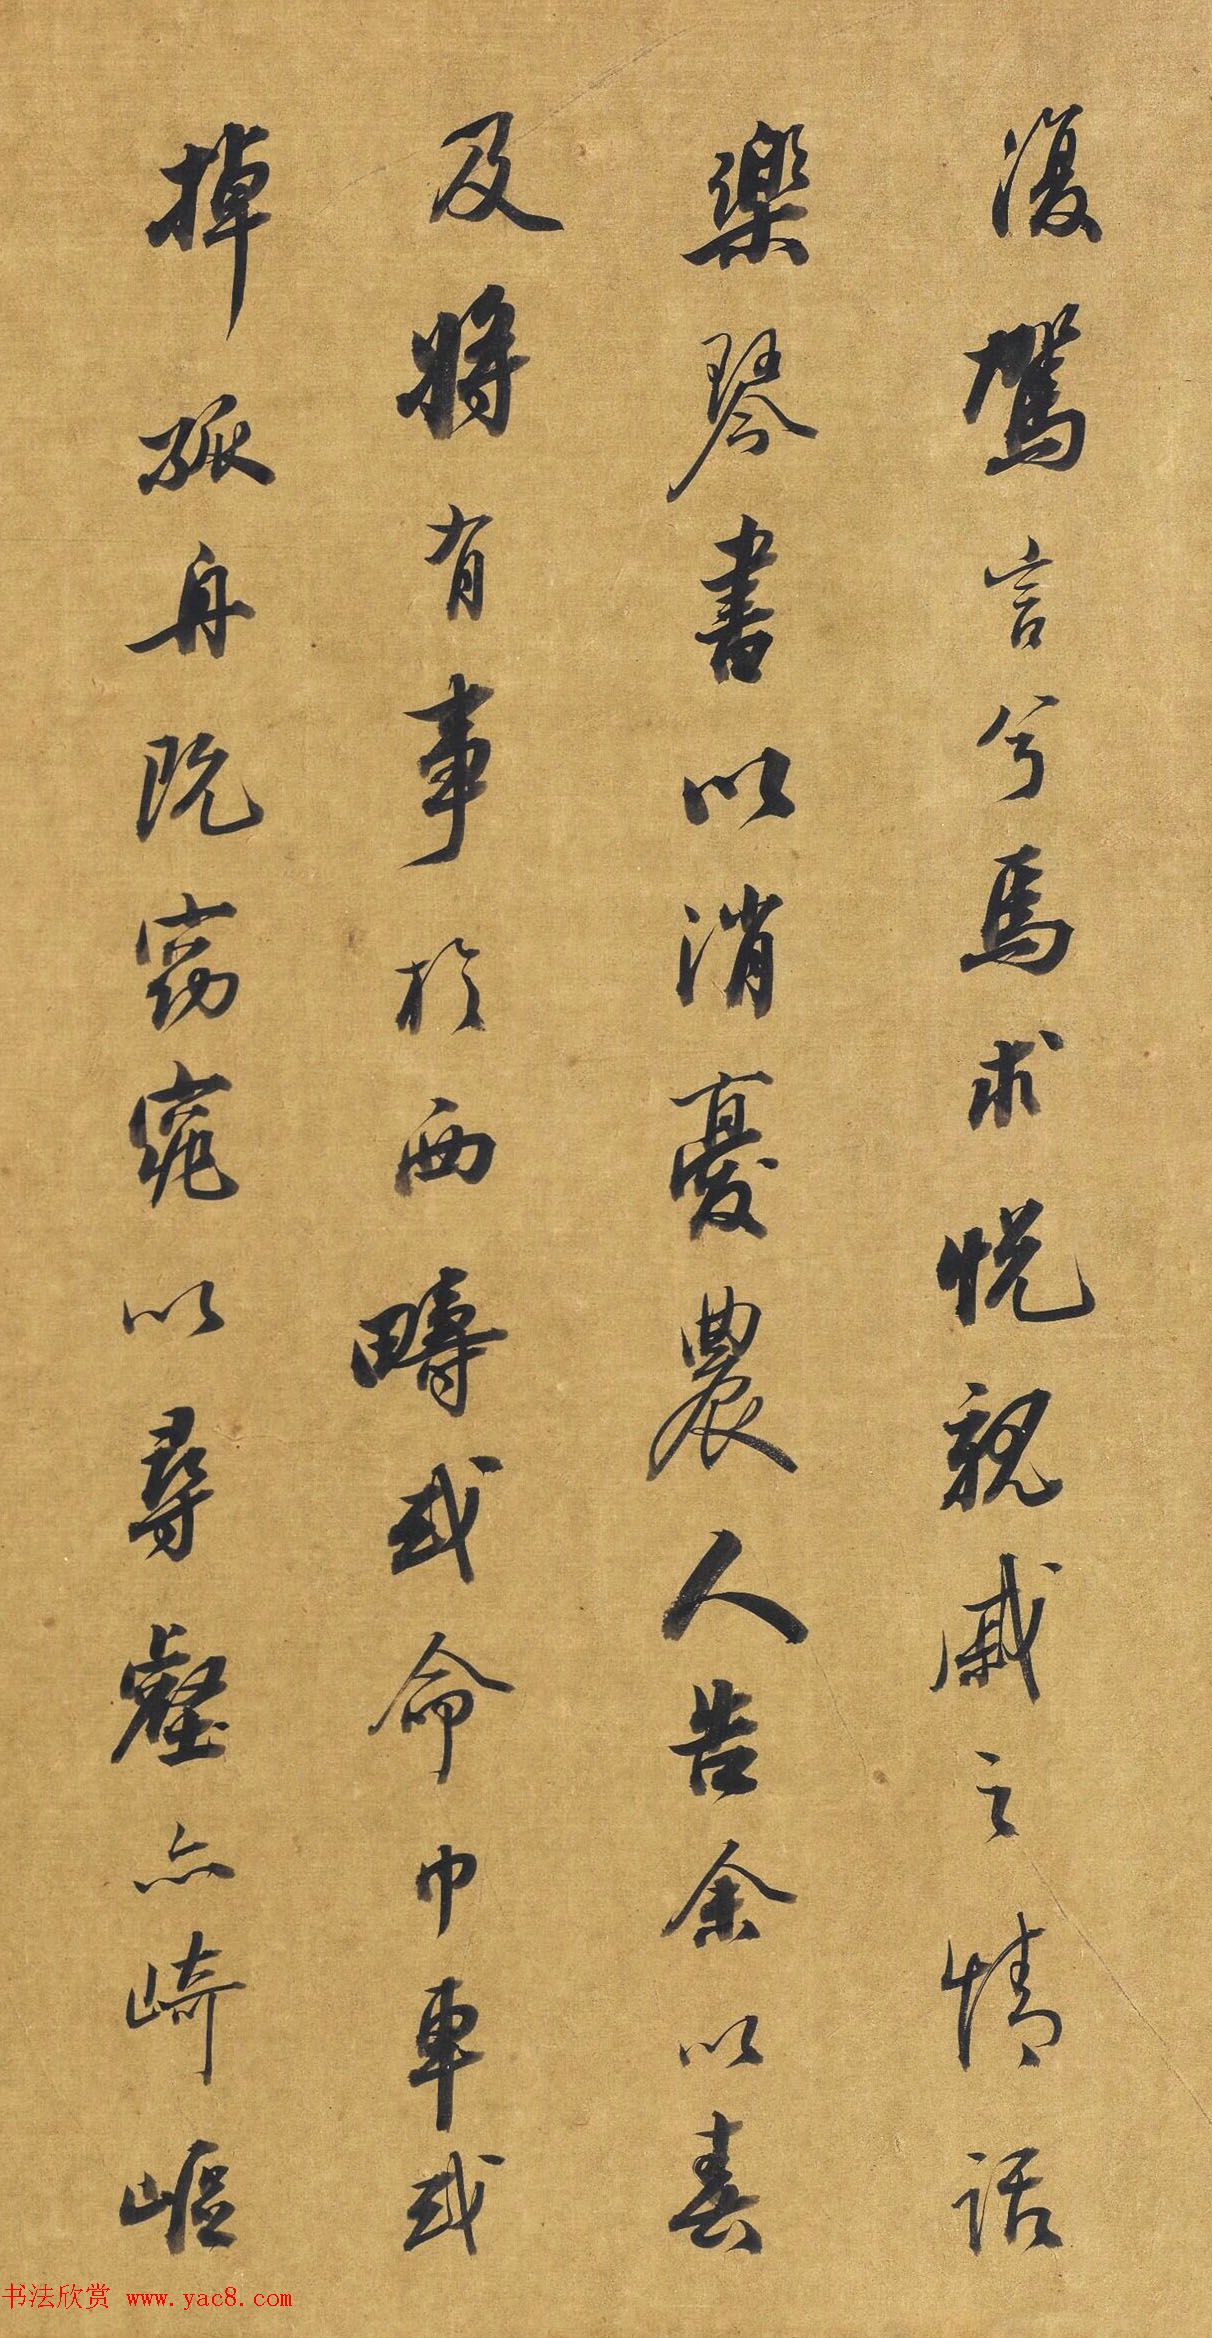 復駕言兮焉求悅親戚之情話
樂琴書以消憂農人告余以春
及將有事於西疇或命巾車或
掉孤舟既窈窕以尋壑亦崎嶇
书法欣赏 www.yac8.com